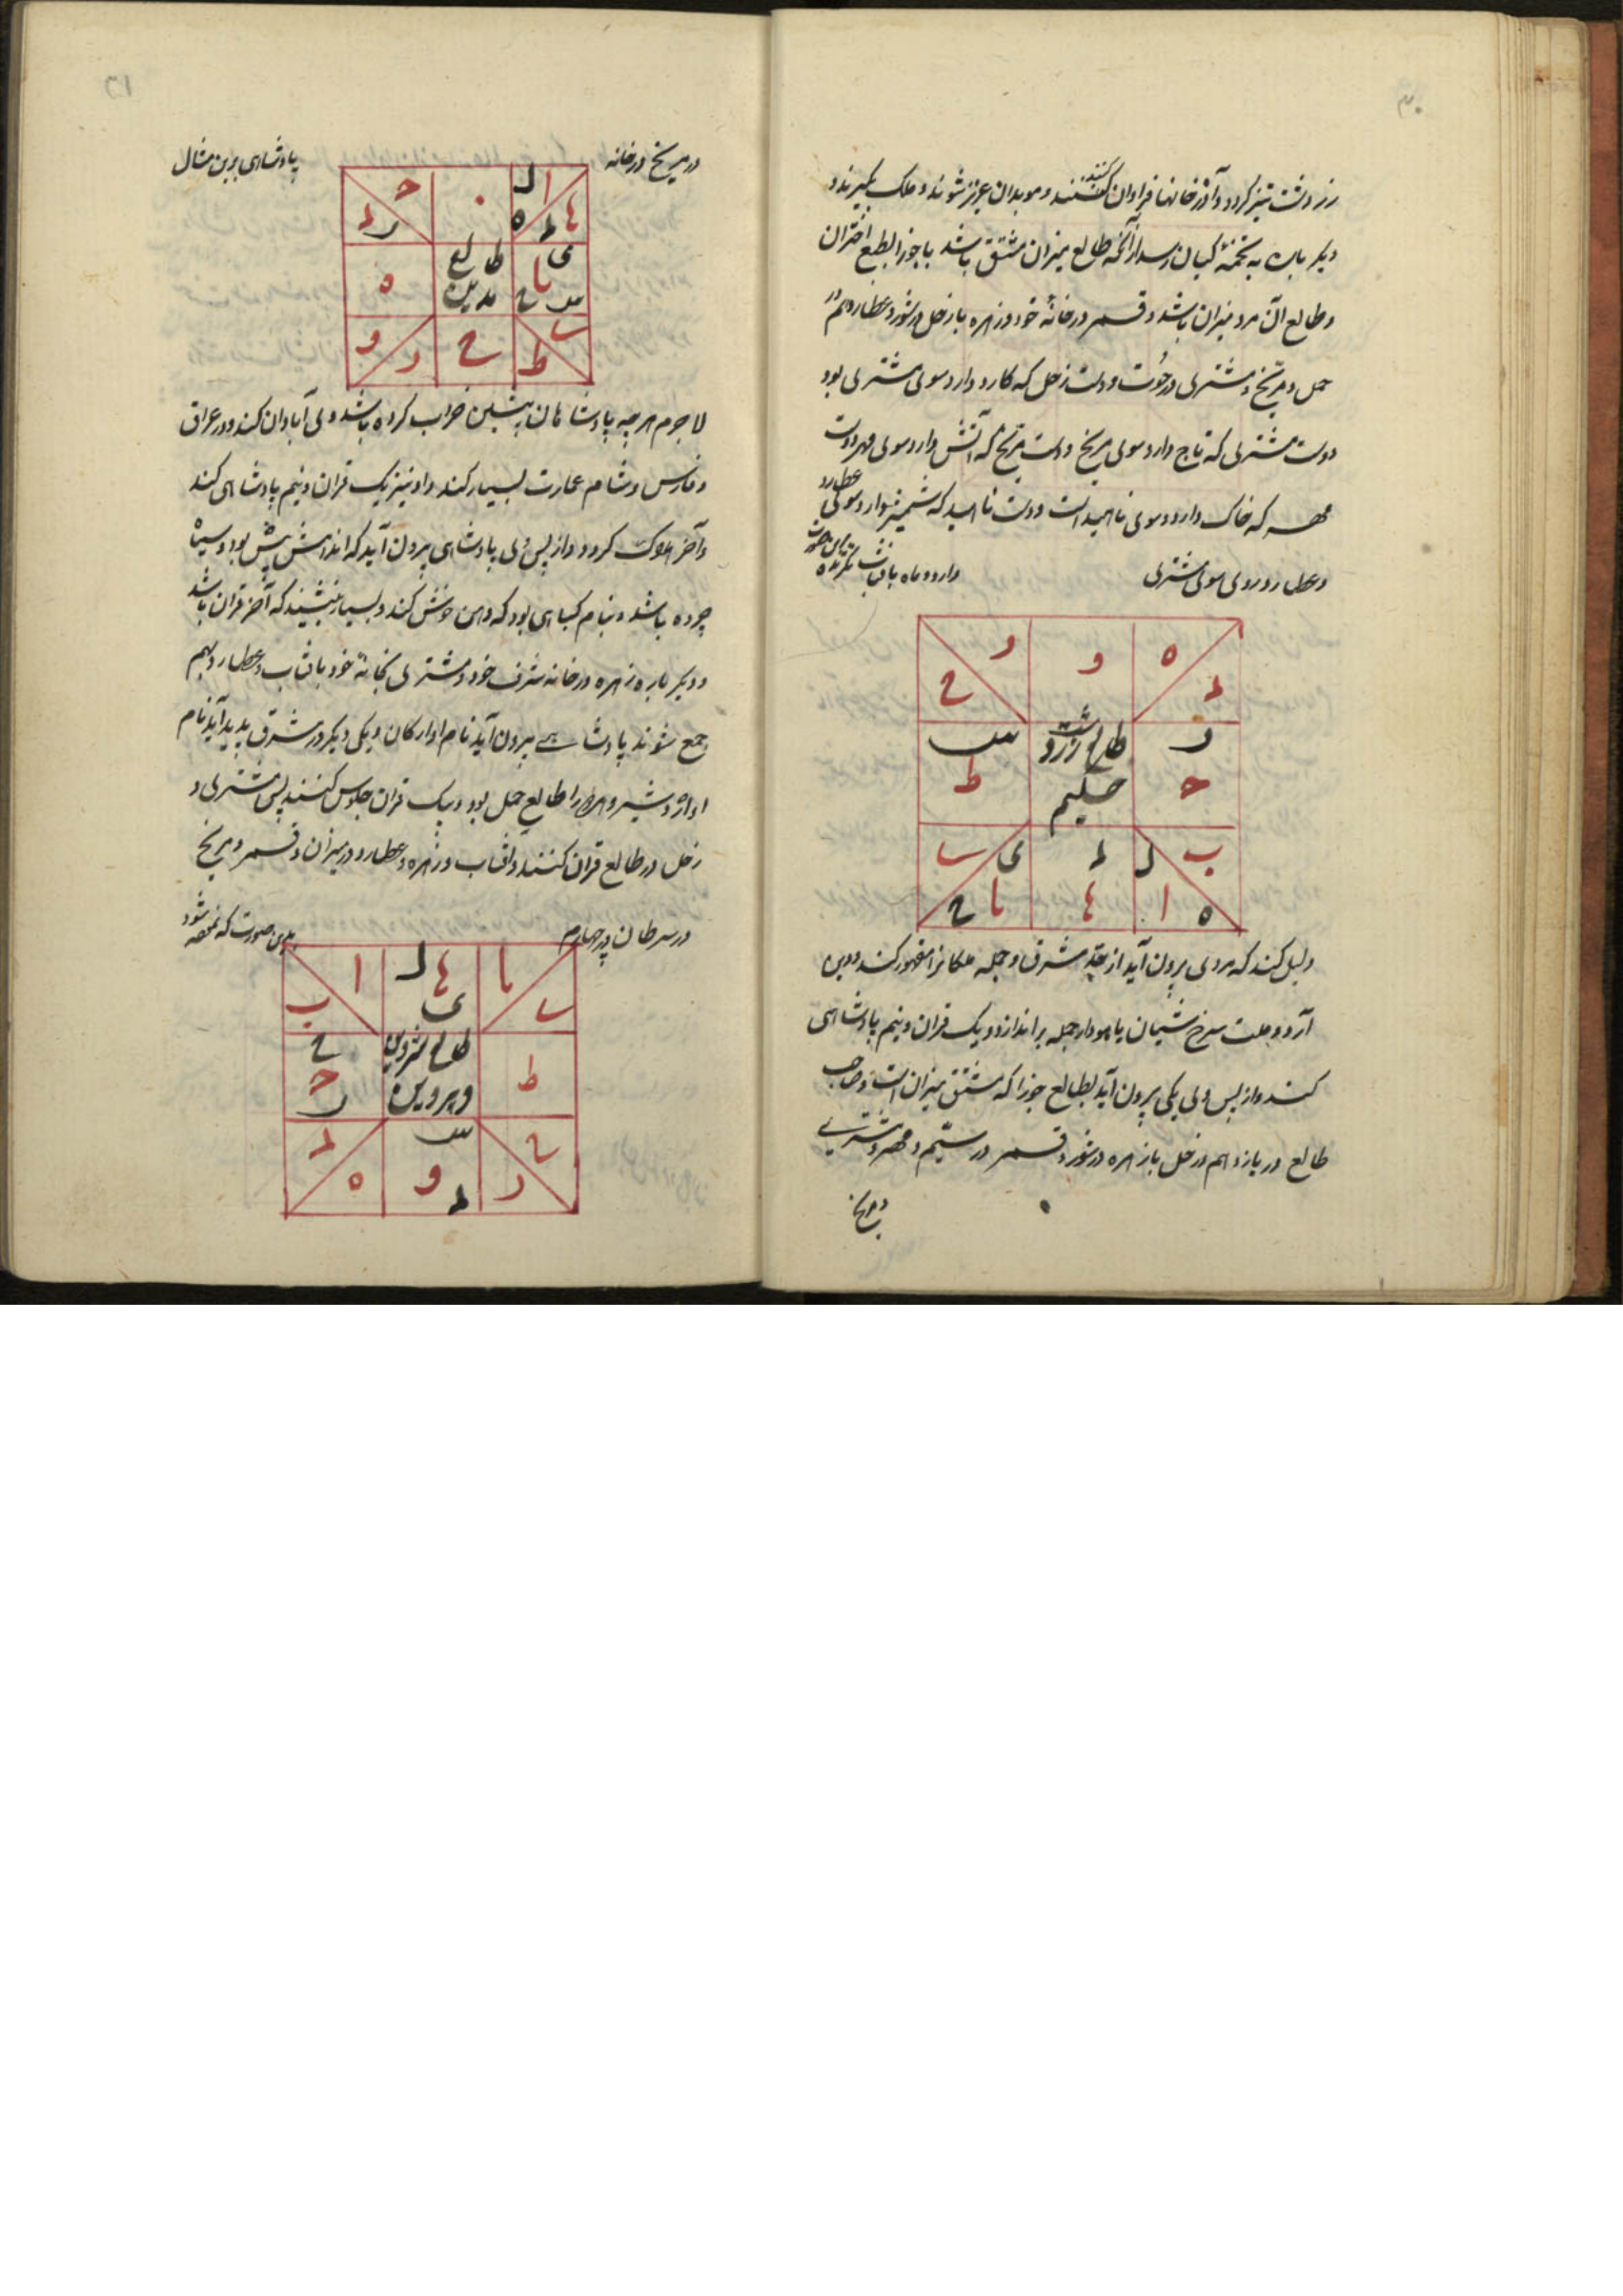 زردشت تیز کردد و آذرخانها فراوان کنند و موبدان عزیز شوند و ملک بگیرند و
دیگر باره به تخمهٔ کیان رسد از آنکه طالع میزان مشتق باشد با جوزا بطبع اختران
و طالع آن مرد میزان باشد و قمر در خانهٔ خود و زهره با زحل در ثور و عطارد هم در
حمل و مریخ و مشتری در حوت و دست زحل که کارد دارد سوی مشتری بود
دست مشتری که تاج دارد سوی مریخ و دست مریخ که آتش دارد سوی مهر و دست
مهر که خاک دارد سوی ناهید است و دست ناهید که شمشیر دارد سوی عطارد
و عطارد روی سوی مشتری
دارد و ماه بآفتاب نگرنده
و
و
ه
ح
د
طالع زردشت
حکیم
س
ط
ر
ح
ب
ا
ه
ل
د
ها
ی
یا
ح
دلیل کند که مردی برون آید از حد مشرق و جمله ملکانرا مقهور کند و دین
آرد و ملت سرخ شبان یا هودار جمله براندازد و یک قران و نیم پادشاهی
کند و از پس وی یکی برون آید بطالع جوزا که مشتق میزان است و صاحب
طالع در یازدهم و زحل با زهره در ثور و قمر در ستیم و مهر و مشتری
و مریخ
در مریخ در خانه
پادشاهی برین مثال
ح
ل
ا
د
ر
ه
ها
طالع
ی
یا
ه
س
ح
و
ر
ح
ط
لاجرم هر چه پادشاهان پیشین خراب کرده باشند وی آبادان کند و در عراق
و فارس و شام عمارت بسیار کند و او نیز یک قران و نیم پادشاهی کند
و آخر هلاک کردد و از پس وی پادشاهی برون آید که اندامش پیش بود و سیاه
چرده باشد و بنام کیاهی بود که دهن خوش کند و بسیار ننشیند که آخر قران باشد
و دیگر باره زهره در خانه شرف خود و مشتری بخانهٔ خود بآفتاب و عطارد بهم
جمع شوند پادشاهی برون آید نام او ارکان و یکی دیگر در مشرق پدید آید نام
او اژدشیر و هر دو را طالع حمل بود و بیک قران جلوس کنند پس مشتری و
زحل در طالع قران کنند و آفتاب و زهره و عطارد در میزان و قمر و مریخ
در سرطان در چهارم
بدین صورت که نموده شود
ا
ل
ها
یا
ب
ی
ح
ح
ر
طالع شروین
و پروین
ط
د
ه
س
و
د
ح
ر